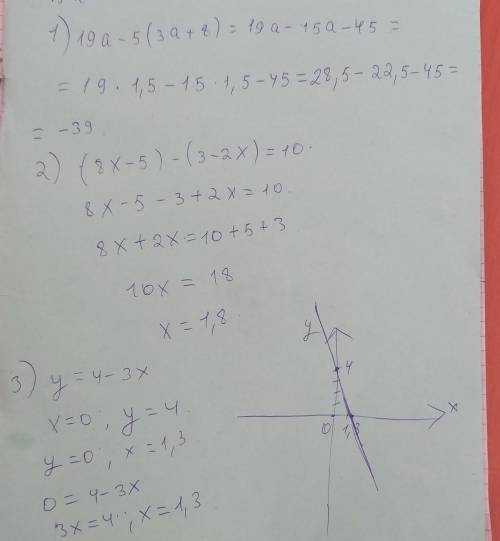 1) 19a - 5(3a + 8) = 19a - 15a - 45 =
= 19 · 1,5 - 15 · 1,5 - 45 = 28,5 - 22,5 - 45 =
= -39
2) (8x - 5) - (3 - 2x) = 10.
8x - 5 - 3 + 2x = 10.
8x + 2x = 10 + 5 + 3
10x = 18
x = 1,8
3) y = 4 - 3x
x = 0; y = 4
y = 0; x = 1,3
0 = 4 - 3x
3x = 4; x = 1,3
y
4
x
0 1,3